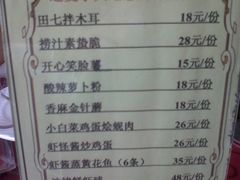 田七拌木耳 18元/份
捞汁素蛰脆 28元/份
开心笑脸薯 15元/份
酸辣萝卜粉 18元/份
香麻金针蘑 18元/份
小白菜鸡蛋烩蚬肉 26元/份
虾怪酱炒鸡蛋 26元/份
虾酱蒸黄花鱼（6条） 35元/份
48元/份